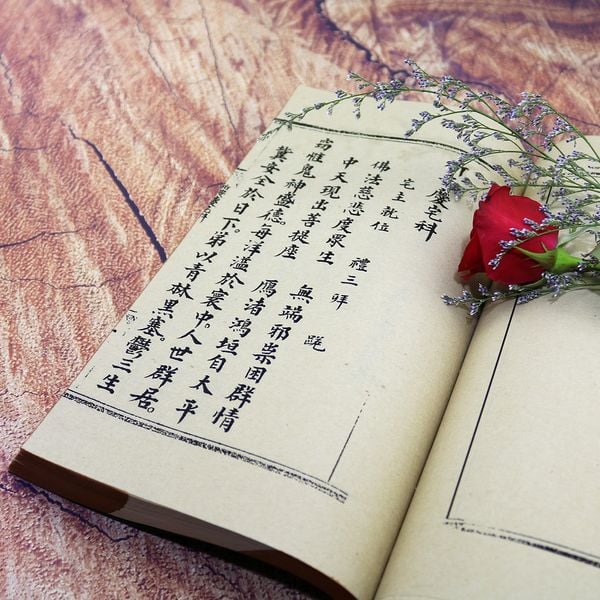 慶宅科
宅主就位 禮三拜 跪
佛法慈悲度眾生 無端邪祟困群情
中天現出菩提座 鴈渚鴻垣自太平
窃惟鬼神盛德。每洋溢於寰中。人世群居。
冀安全於日下。弟以青林黑塞。鬱三生